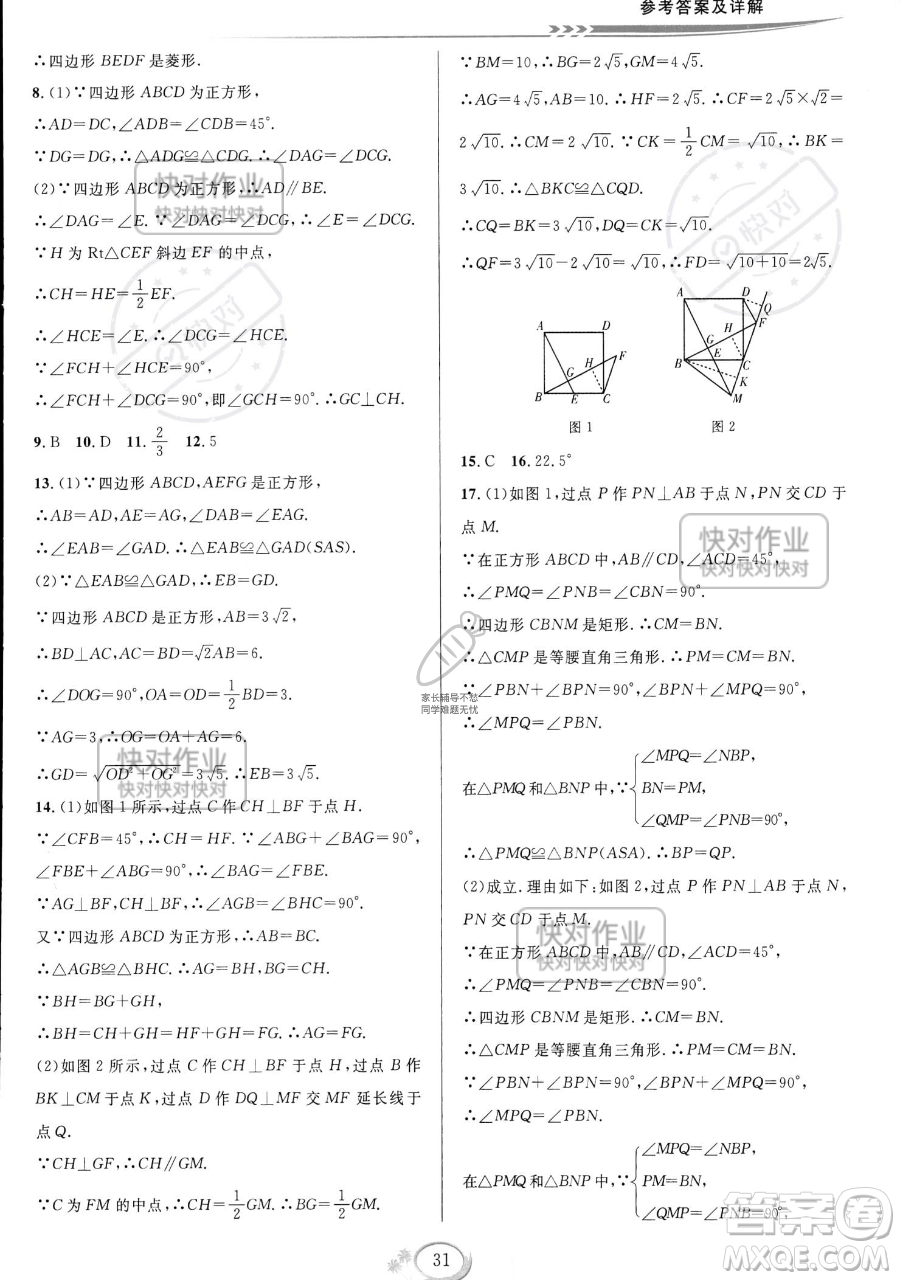 参考答案及详解
∴四边形BEDF是菱形.
8.(1)∵四边形ABCD为正方形，
∴AD=DC,∠ADB=∠CDB=45°.
∵DG=DG,∴△ADG≌△CDG.∴∠DAG=∠DCG.
(2)∵四边形ABCD为正方形,∴AD∥BE.
∴∠DAG=∠E.∵∠DAG=∠DCG,∴∠E=∠DCG.
∵H为Rt△CEF斜边EF的中点，
∴CH=HE=1/2EF.
∴∠HCE=∠E.∴∠DCG=∠HCE.
∵∠FCH+∠HCE=90°,
∴∠FCH+∠DCG=90°,即∠GCH=90°.∴GC⊥CH.
9.B 10.D 11.2/3 12.5
13.(1)∵四边形ABCD,AEFG是正方形，
∴AB=AD,AE=AG,∠DAB=∠EAG.
∴∠EAB=∠GAD.∴△EAB≌△GAD(SAS).
(2)∵△EAB≌△GAD,∴EB=GD.
∵四边形ABCD是正方形,AB=3√2,
∴BD⊥AC,AC=BD=√2AB=6.
∴∠DOG=90°,OA=OD=1/2BD=3.
∵AG=3,∴OG=OA+AG=6.
∴GD=√(OD²+OG²)=3√5.∴EB=3√5.
14.(1)如图1所示,过点C作CH⊥BF于点H.
∵∠CFB=45°,∴CH=HF.∵∠ABG+∠BAG=90°,
∠FBE+∠ABG=90°,∴∠BAG=∠FBE.
∵AG⊥BF,CH⊥BF,∴∠AGB=∠BHC=90°.
又∵四边形ABCD为正方形,∴AB=BC.
∴△AGB≌△BHC.∴AG=BH,BG=CH.
∵BH=BG+GH,
∴BH=CH+GH=HF+GH=FG.∴AG=FG.
(2)如图2所示,过点C作CH⊥BF于点H,过点B作
BK⊥CM于点K,过点D作DQ⊥MF交MF延长线于
点Q.
∵CH⊥GF,∴CH∥GM.
∵C为FM的中点,∴CH=1/2GM.∴BG=1/2GM.
∵BM=10,∴BG=2√5,GM=4√5.
∴AG=4√5,AB=10.∴HF=2√5.∴CF=2√5×√2=
2√10.∴CM=2√10.∵CK=1/2CM=√10.∴BK=
3√10.∴△BKC≌△CQD.
∴CQ=BK=3√10,DQ=CK=√10.
∴QF=3√10-2√10=√10.∴FD=√(10+10)=2√5.
A D G H F B E C
A D Q F G H B E C K M
图1 图2
15.C 16.22.5°
17.(1)如图1,过点P作PN⊥AB于点N,PN交CD于
点M.
∵在正方形ABCD中,AB∥CD,∠ACD=45°,
∴∠PMQ=∠PNB=∠CBN=90°.
∴四边形CBNM是矩形.∴CM=BN.
∴△CMP是等腰直角三角形.∴PM=CM=BN.
∵∠PBN+∠BPN=90°,∠BPN+∠MPQ=90°,
∴∠MPQ=∠PBN.
∠MPQ=∠NBP,
在△PMQ和△BNP中,∵ BN=PM,
∠QMP=∠PNB=90°,
∴△PMQ≌△BNP(ASA).∴BP=QP.
(2)成立.理由如下:如图2,过点P作PN⊥AB于点N,
PN交CD于点M.
∵在正方形ABCD中,AB∥CD,∠ACD=45°,
∴∠PMQ=∠PNB=∠CBN=90°.
∴四边形CBNM是矩形.∴CM=BN.
∴△CMP是等腰直角三角形.∴PM=CM=BN.
∵∠PBN+∠BPN=90°,∠BPN+∠MPQ=90°,
∴∠MPQ=∠PBN.
∠MPQ=∠NBP,
在△PMQ和△BNP中,∵ PM=BN,
∠QMP=∠PNB=90°,
31
快对作业
快对快对快对
快对作业
快对快对快对
快对作业
快对快对快对
快对作业
快对快对快对
快对
快对
家长辅导不愁
同学难题无忧
答案圈
MXQE.COM